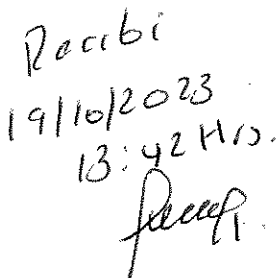 Recibi
19/10/2023
13:42 Hrs.